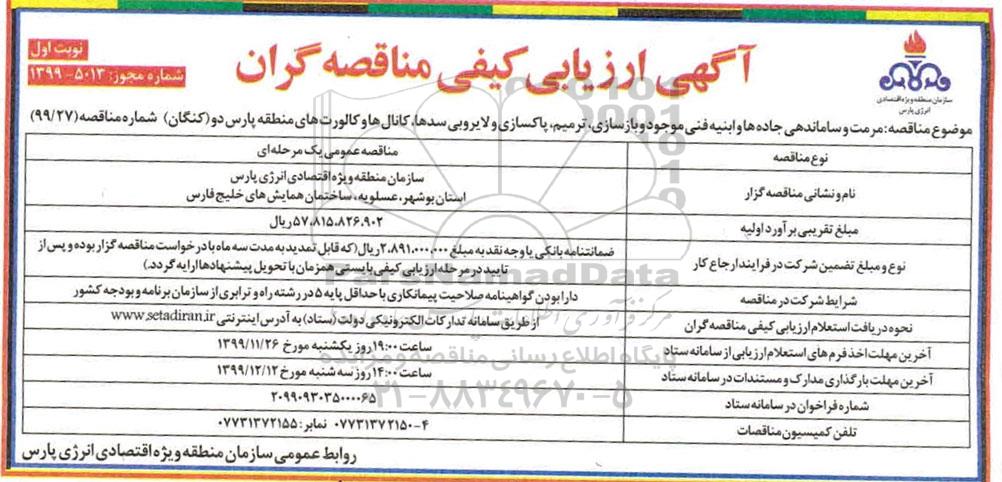 آگهی ارزیابی کیفی مناقصه گران
نوبت اول
شماره مجوز: ۵۰۱۳-۱۳۹۹
سازمان منطقه ویژه اقتصادی
انرژی پارس
موضوع مناقصه: مرمت و ساماندهی جاده ها و ابنیه فنی موجود و بازسازی، ترمیم، پاکسازی و لایروبی سدها، کانال ها و کالورت های منطقه پارس دو (کنگان) شماره مناقصه (۹۹/۲۷)
نوع مناقصه مناقصه عمومی یک مرحله ای
نام و نشانی مناقصه گزار سازمان منطقه ویژه اقتصادی انرژی پارس
استان بوشهر، عسلویه، ساختمان همایش های خلیج فارس
مبلغ تقریبی برآورد اولیه ۵۷،۸۱۵،۸۲۶،۹۰۲ ریال
نوع و مبلغ تضمین شرکت در فرایند ارجاع کار ضمانتنامه بانکی یا وجه نقد به مبلغ ۲،۸۹۱،۰۰۰،۰۰۰ ریال (که قابل تمدید به مدت سه ماه با درخواست مناقصه گزار بوده و پس از
تایید در مرحله ارزیابی کیفی بایستی همزمان با تحویل پیشنهادها ارایه گردد.)
شرایط شرکت در مناقصه دارا بودن گواهینامه صلاحیت پیمانکاری با حداقل پایه ۵ در رشته راه و ترابری از سازمان برنامه و بودجه کشور
نحوه دریافت استعلام ارزیابی کیفی مناقصه گران از طریق سامانه تدارکات الکترونیکی دولت (ستاد) به آدرس اینترنتی www.setadiran.ir
آخرین مهلت اخذ فرم های استعلام ارزیابی از سامانه ستاد ساعت ۱۹:۰۰ روز یکشنبه مورخ ۱۳۹۹/۱۱/۲۶
آخرین مهلت بارگذاری مدارک و مستندات در سامانه ستاد ساعت ۱۴:۰۰ روز سه شنبه مورخ ۱۳۹۹/۱۲/۱۲
شماره فراخوان در سامانه ستاد ۲۰۹۹۰۹۳۰۳۵۰۰۰۰۶۵
تلفن کمیسیون مناقصات ۰۷۷۳۱۳۷۲۱۵۰-۴ نمابر: ۰۷۷۳۱۳۷۲۱۵۵
روابط عمومی سازمان منطقه ویژه اقتصادی انرژی پارس
ParsNamadData
پایگاه اطلاع رسانی مناقصه و مزایده
۰۲۱-۸۸۳۴۹۶۷۰-۵